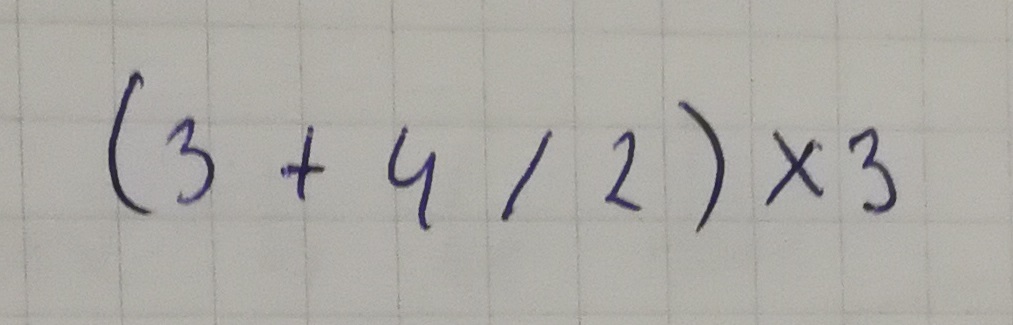 (3 + 4 / 2) × 3